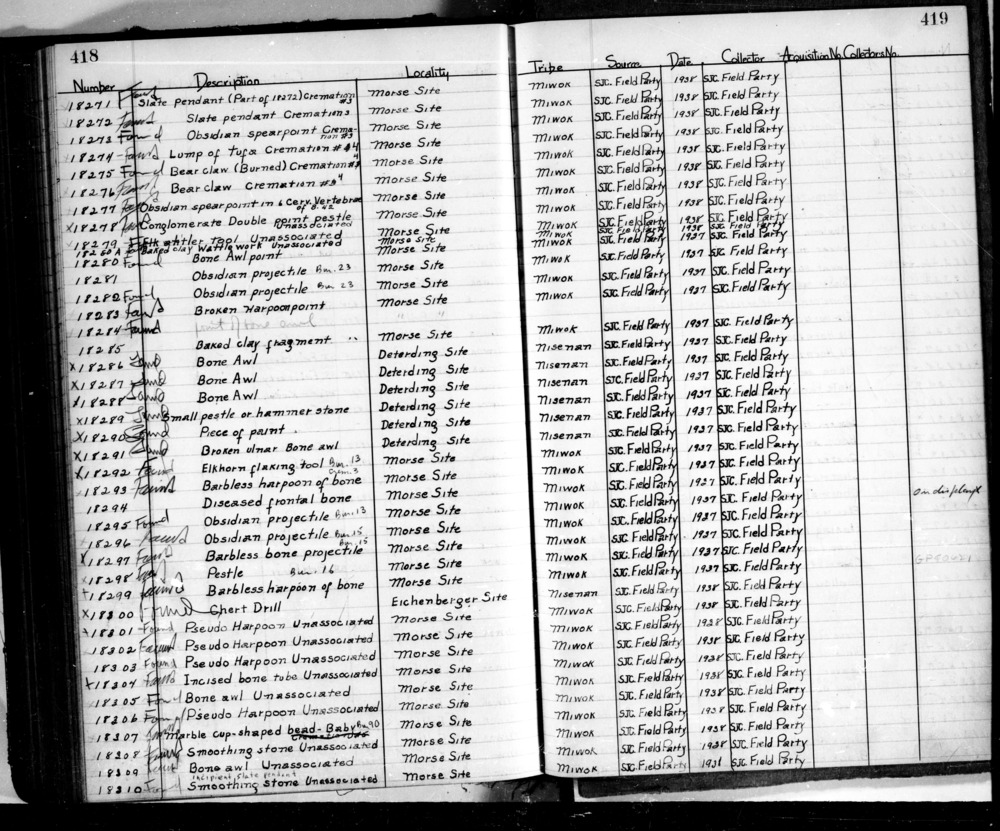 418
Number Description Locality
18271 Found Slate pendant (Part of 18272) Cremation #3 Morse Site
18272 Found Slate pendant Cremation 3 Morse Site
18273 Found Obsidian spearpoint Cremation #3 Morse Site
18274 - Found Lump of tufa Cremation #4 Morse Site
18275 Found Bear claw (Burned) Cremation # 4 Morse Site
18276 Found Bear claw Cremation # 4 Morse Site
18277 Found Obsidian spearpoint in 6 Cerv. Vertebrae of B. 42 Morse Site
X18278 Found Conglomerate Double point pestle Unassociated Morse Site
18279 Elk antler Tool Unassociated Morse Site
18260A Baked clay Wattlework Unassociated Morse Site
18280 Found Bone Awl point Morse Site
18281 Obsidian projectile Bur. 23 Morse Site
18282 Found Obsidian projectile Bur. 23 Morse Site
18283 Found Broken Harpoon point Morse Site
18284 Found point of bone awl " "
18285 Baked clay fragment .. Morse Site
X18286 Found Bone Awl Deterding Site
X18287 Found Bone Awl Deterding Site
X18288 Found Bone Awl Deterding Site
X18289 Found Small pestle or hammer stone Deterding Site
X18290 Found Piece of paint Deterding Site
X18291 Found Broken ulnar Bone awl Deterding Site
X18292 Found Elkhorn flaking tool Bur. 13 Morse Site
18293 Found Barbless harpoon of bone Morse Site
18294 Diseased frontal bone Morse Site
18295 Found Obsidian projectile Bur. 13 Morse Site
18296 Found Obsidian projectile Bur. 15 Morse Site
X18297 Found Barbless bone projectile Bur. 15 Morse Site
X18298 Found Pestle Bur. 16 Morse Site
18299 Found Barbless harpoon of bone Morse Site
X18300 Found Chert Drill Eichenberger Site
18301 - Found Pseudo Harpoon Unassociated Morse Site
18302 Found Pseudo Harpoon Unassociated Morse Site
18303 Found Pseudo Harpoon Unassociated Morse Site
18304 Found Incised bone tube Unassociated Morse Site
18305 Found Bone awl Unassociated Morse Site
18306 Found Pseudo Harpoon Unassociated Morse Site
18307 Marble cup-shaped bead - Baby Bu. 90 Morse Site
18308 Found Smoothing stone Unassociated Morse Site
18309 Found Bone awl Unassociated Morse Site
18310 Found incipient slate pendant Smoothing stone Unassociated Morse Site
419
Tribe Source Date Collector Acquisition No. Collectors No.
Miwok SJC. Field Party 1938 SJC. Field Party
Miwok SJC. Field Party 1938 SJC. Field Party
Miwok SJC. Field Party 1938 SJC. Field Party
Miwok SJC. Field Party 1938 SJC. Field Party
Miwok SJC. Field Party 1938 SJC. Field Party
Miwok SJC. Field Party 1938 SJC. Field Party
Miwok SJC. Field Party 1938 SJC. Field Party
Miwok SJC. Field Party 1938 SJC. Field Party
Miwok SJC. Field Party 1938 SJC. Field Party
Miwok SJC. Field Party 1937 SJC. Field Party
Miwok SJC. Field Party 1937 SJC. Field Party
Miwok SJC. Field Party 1937 SJC. Field Party
Miwok SJC. Field Party 1937 SJC. Field Party
Miwok SJC. Field Party 1937 SJC. Field Party
Nisenan SJC. Field Party 1937 SJC. Field Party
Nisenan SJC. Field Party 1937 SJC. Field Party
Nisenan SJC. Field Party 1937 SJC. Field Party
Nisenan SJC. Field Party 1937 SJC. Field Party
Nisenan SJC. Field Party 1937 SJC. Field Party
Nisenan SJC. Field Party 1937 SJC. Field Party
Miwok SJC. Field Party 1937 SJC. Field Party
Miwok SJC. Field Party 1937 SJC. Field Party
Miwok SJC. Field Party 1937 SJC. Field Party on display
Miwok SJC. Field Party 1937 SJC. Field Party
Miwok SJC. Field Party 1937 SJC. Field Party
Miwok SJC. Field Party 1937 SJC. Field Party
Miwok SJC. Field Party 1937 SJC. Field Party
Miwok SJC. Field Party 1937 SJC. Field Party
Nisenan SJC. Field Party 1938 SJC. Field Party
Miwok SJC. Field Party 1938 SJC. Field Party
Miwok SJC. Field Party 1938 SJC. Field Party
Miwok SJC. Field Party 1938 SJC. Field Party
Miwok SJC. Field Party 1938 SJC. Field Party
Miwok SJC. Field Party 1938 SJC. Field Party
Miwok SJC. Field Party 1938 SJC. Field Party
Miwok SJC. Field Party 1938 SJC. Field Party
Miwok SJC. Field Party 1938 SJC. Field Party
Miwok SJC. Field Party 1938 SJC. Field Party
Miwok SJC. Field Party 1938 SJC. Field Party